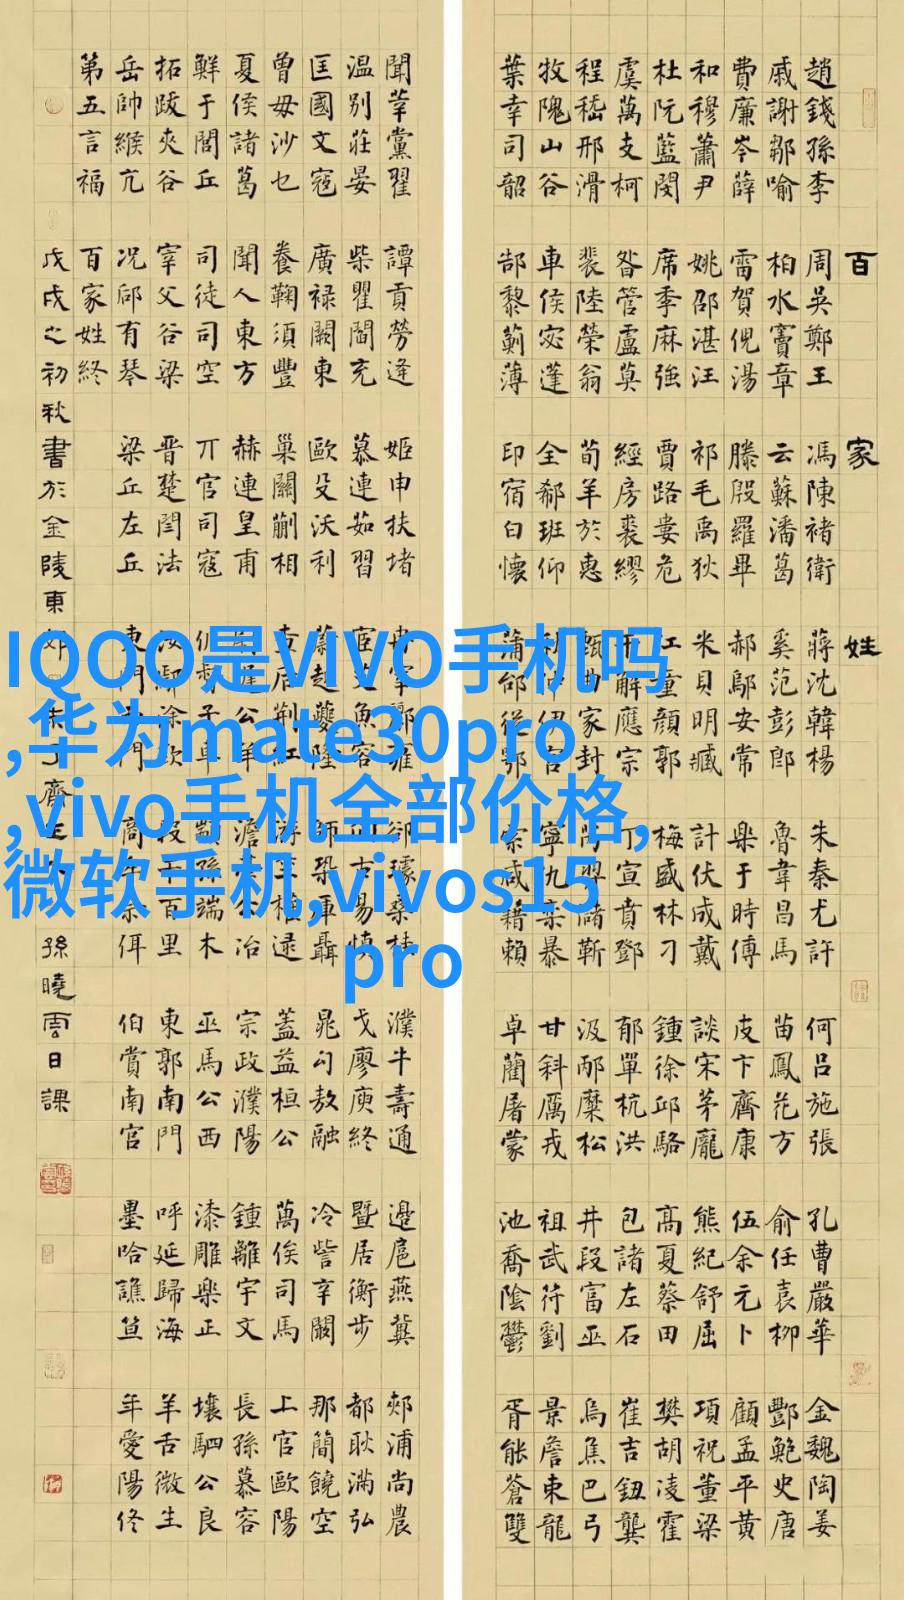 百家姓
趙錢孫李 周吳鄭王 馮陳褚衛 蔣沈韓楊 朱秦尤許 何呂施張 孔曹嚴華 金魏陶姜
戚謝鄒喻 柏水竇章 云蘇潘葛 奚范彭郎 魯韋昌馬 苗鳳花方 俞任袁柳 酆鮑史唐
費廉岑薛 雷賀倪湯 滕殷羅畢 郝鄔安常 樂于時傅 皮卞齊康 伍余元卜 顧孟平黃
和穆蕭尹 姚邵湛汪 祁毛禹狄 米貝明臧 計伏成戴 談宋茅龐 熊紀舒屈 項祝董梁
杜阮藍閔 席季麻強 賈路婁危 江童顏郭 梅盛林刁 鍾徐邱駱 高夏蔡田 樊胡凌霍
虞萬支柯 昝管盧莫 經房裘繆 干解應宗 丁宣賁鄧 郁單杭洪 包諸左石 崔吉鈕龔
程嵇邢滑 裴陸榮翁 荀羊於惠 甄曲家封 芮羿儲靳 汲邴糜松 井段富巫 烏焦巴弓
牧隗山谷 車侯宓蓬 全郗班仰 秋仲伊宮 寧仇欒暴 甘斜厲戎 祖武符劉 景詹束龍
葉幸司韶 郜黎薊薄 印宿白懷 蒲邰從鄂 索咸籍賴 卓藺屠蒙 池喬陰鬱 胥能蒼雙
聞莘黨翟 譚貢勞逄 姬申扶堵 冉宰酈雍 郤璩桑桂 濮牛壽通 邊扈燕冀 郟浦尚農
温別莊晏 柴瞿閻充 慕連茹習 宦艾魚容 向古易慎 戈廖庾終 暨居衡步 都耿滿弘
匡國文寇 廣祿闕東 歐殳沃利 蔚越夔隆 師鞏厙聶 晁勾敖融 冷訾辛闞 那簡饒空
曾毋沙乜 養鞠須豐 巢關蒯相 查后荊紅 游竺權逯 蓋益桓公 萬俟司馬 上官歐陽
夏侯諸葛 聞人東方 赫連皇甫 尉遲公羊 澹臺公冶 宗政濮陽 鍾離宇文 長孫慕容
鮮于閭丘 司徒司空 丌官司寇 仉督子車 顓孫端木 巫馬公西 漆雕樂正 壤駟公良
拓跋夾谷 宰父谷梁 晋楚閆法 汝鄢涂欽 段干百里 東郭南門 呼延歸海 羊舌微生
岳帥緱亢 况郈有琴 梁丘左丘 東門西門 商牟佘佴 伯賞南宮 墨哈譙笪 年愛陽佟
第五言福 百家姓終
戊戌之初秋書於金陵東郊 齋主 孫曉雲日課
IQOO是VIVO手机吗
,华为mate30pro
,vivo手机全部价格,
微软手机,vivos15
pro